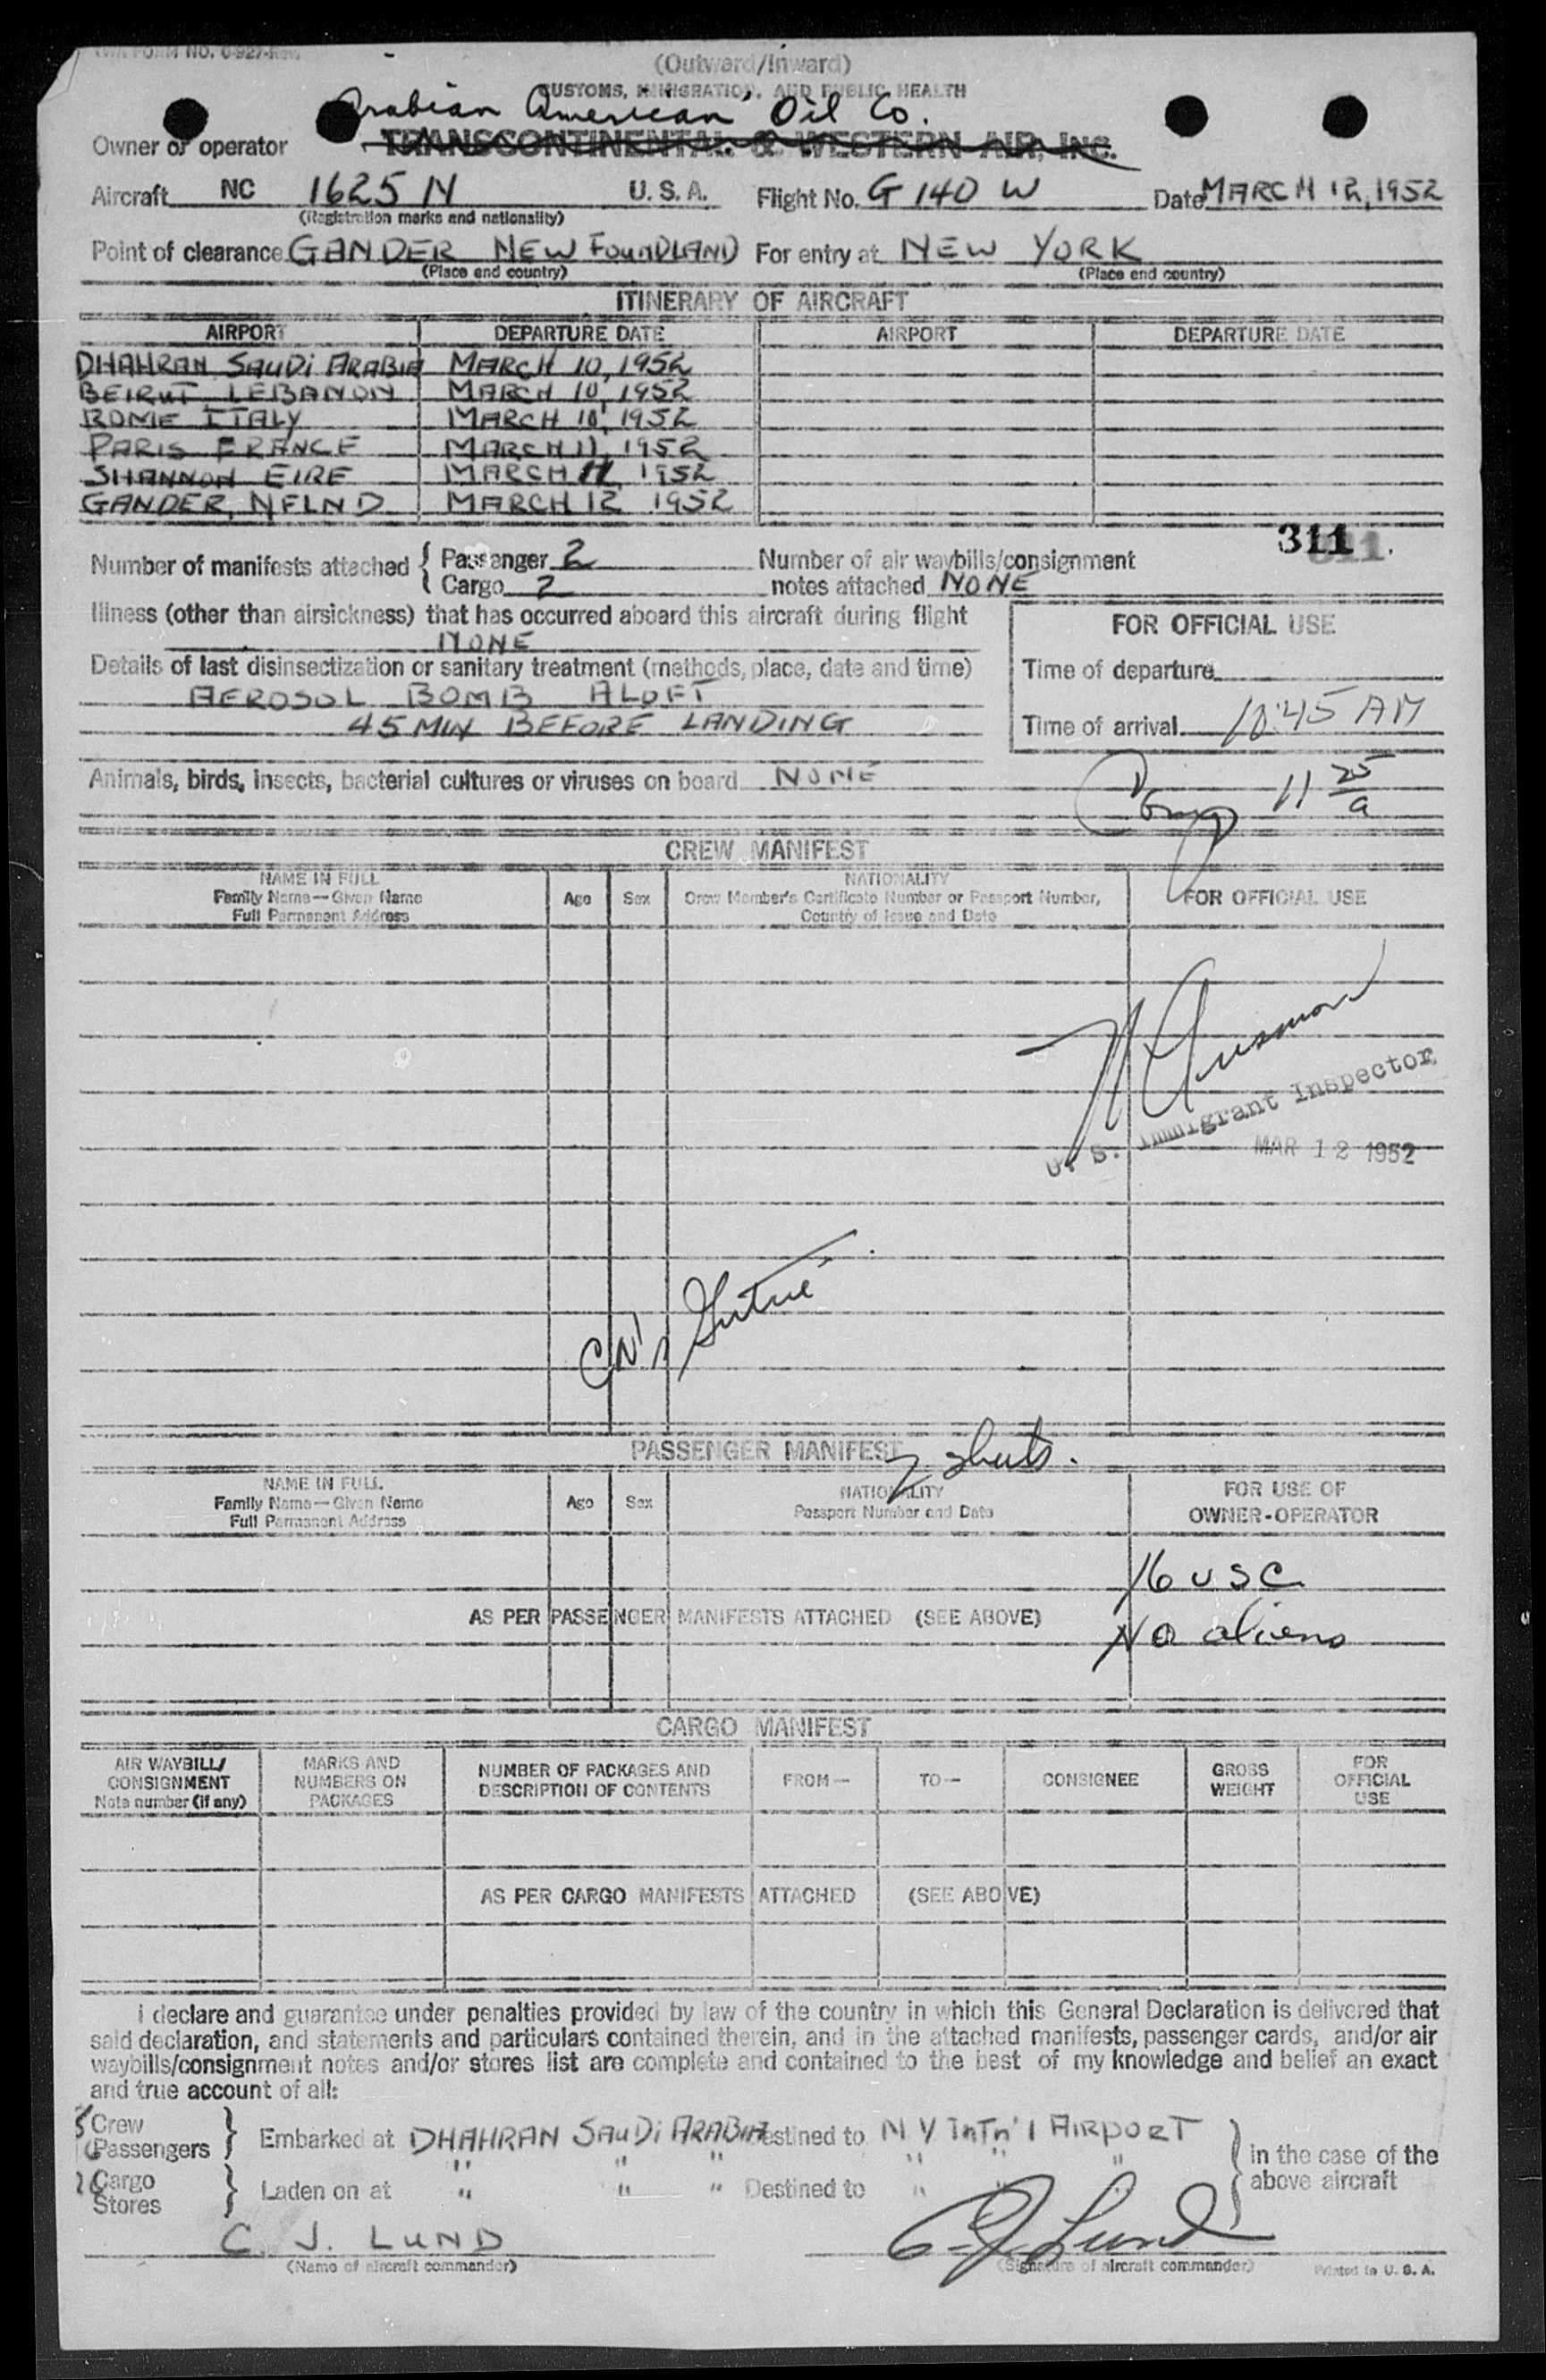 TWA FORM NO. 0-927-Rev
(Outward/Inward)
CUSTOMS, IMMIGRATION, AND PUBLIC HEALTH
Arabian American Oil Co.
Owner or operator TRANSCONTINENTAL & WESTERN AIR, INC.
Aircraft NC 1625 N U. S. A. Flight No. G 140 W Date MARCH 12, 1952
(Registration marks and nationality)
Point of clearance GANDER NEW FOUNDLAND For entry at NEW YORK
(Place and country) (Place and country)
ITINERARY OF AIRCRAFT
AIRPORT DEPARTURE DATE AIRPORT DEPARTURE DATE
DHAHRAN SAUDI ARABIA MARCH 10, 1952
BEIRUT LEBANON MARCH 10, 1952
ROME ITALY MARCH 10, 1952
PARIS FRANCE MARCH 11, 1952
SHANNON EIRE MARCH 11, 1952
GANDER, NFLND MARCH 12 1952
311
Number of manifests attached { Passenger 2 Number of air waybills/consignment
Cargo 2 notes attached NONE
Illness (other than airsickness) that has occurred aboard this aircraft during flight
NONE
FOR OFFICIAL USE
Details of last disinsectization or sanitary treatment (methods, place, date and time)
Time of departure
AEROSOL BOMB ALOFT
45 MIN BEFORE LANDING
Time of arrival 10:45 AM
Animals, birds, insects, bacterial cultures or viruses on board NONE
11 25/a
CREW MANIFEST
NAME IN FULL
Family Name—Given Name
Full Permanent Address
Age Sex
NATIONALITY
Crew Member's Certificate Number or Passport Number,
Country of Issue and Date
FOR OFFICIAL USE
U. S. Immigrant Inspector
MAR 12 1952
PASSENGER MANIFEST
2 sheets.
NAME IN FULL
Family Name—Given Name
Full Permanent Address
Age Sex
NATIONALITY
Passport Number and Date
FOR USE OF
OWNER-OPERATOR
16 USC
AS PER PASSENGER MANIFESTS ATTACHED (SEE ABOVE)
No aliens
CARGO MANIFEST
AIR WAYBILL/
CONSIGNMENT
Note number (if any)
MARKS AND
NUMBERS ON
PACKAGES
NUMBER OF PACKAGES AND
DESCRIPTION OF CONTENTS
FROM—
TO—
CONSIGNEE
GROSS
WEIGHT
FOR
OFFICIAL
USE
AS PER CARGO MANIFESTS ATTACHED (SEE ABOVE)
I declare and guarantee under penalties provided by law of the country in which this General Declaration is delivered that
said declaration, and statements and particulars contained therein, and in the attached manifests, passenger cards, and/or air
waybills/consignment notes and/or stores list are complete and contained to the best of my knowledge and belief an exact
and true account of all:
Crew
Passengers } Embarked at DHAHRAN SAUDI ARABIA Destined to N Y INTN'l AIRPORT
in the case of the
above aircraft
Cargo
Stores } Laden on at " " " Destined to " " "
C. J. LUND C. J. Lund
(Name of aircraft commander) (Signature of aircraft commander) Printed in U. S. A.